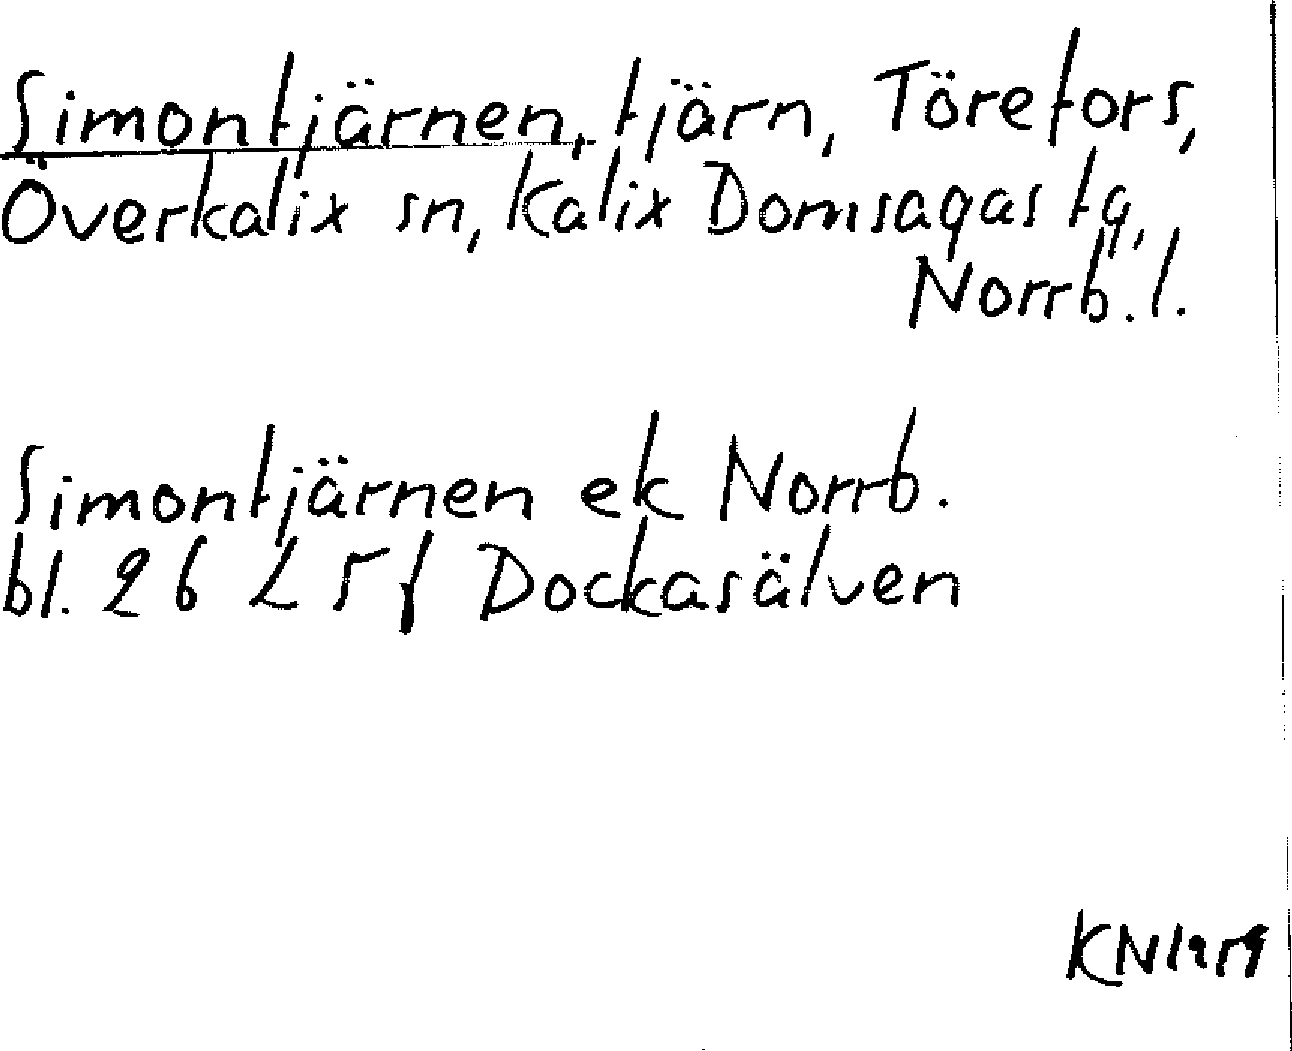 Simontjärnen, tjärn, Törefors,
Överkalix sn, Kalix Domsagas tg,
Norrb. l.
Simontjärnen ek Norrb.
bl. 26 L 5 f Dockasälven
KN 1959